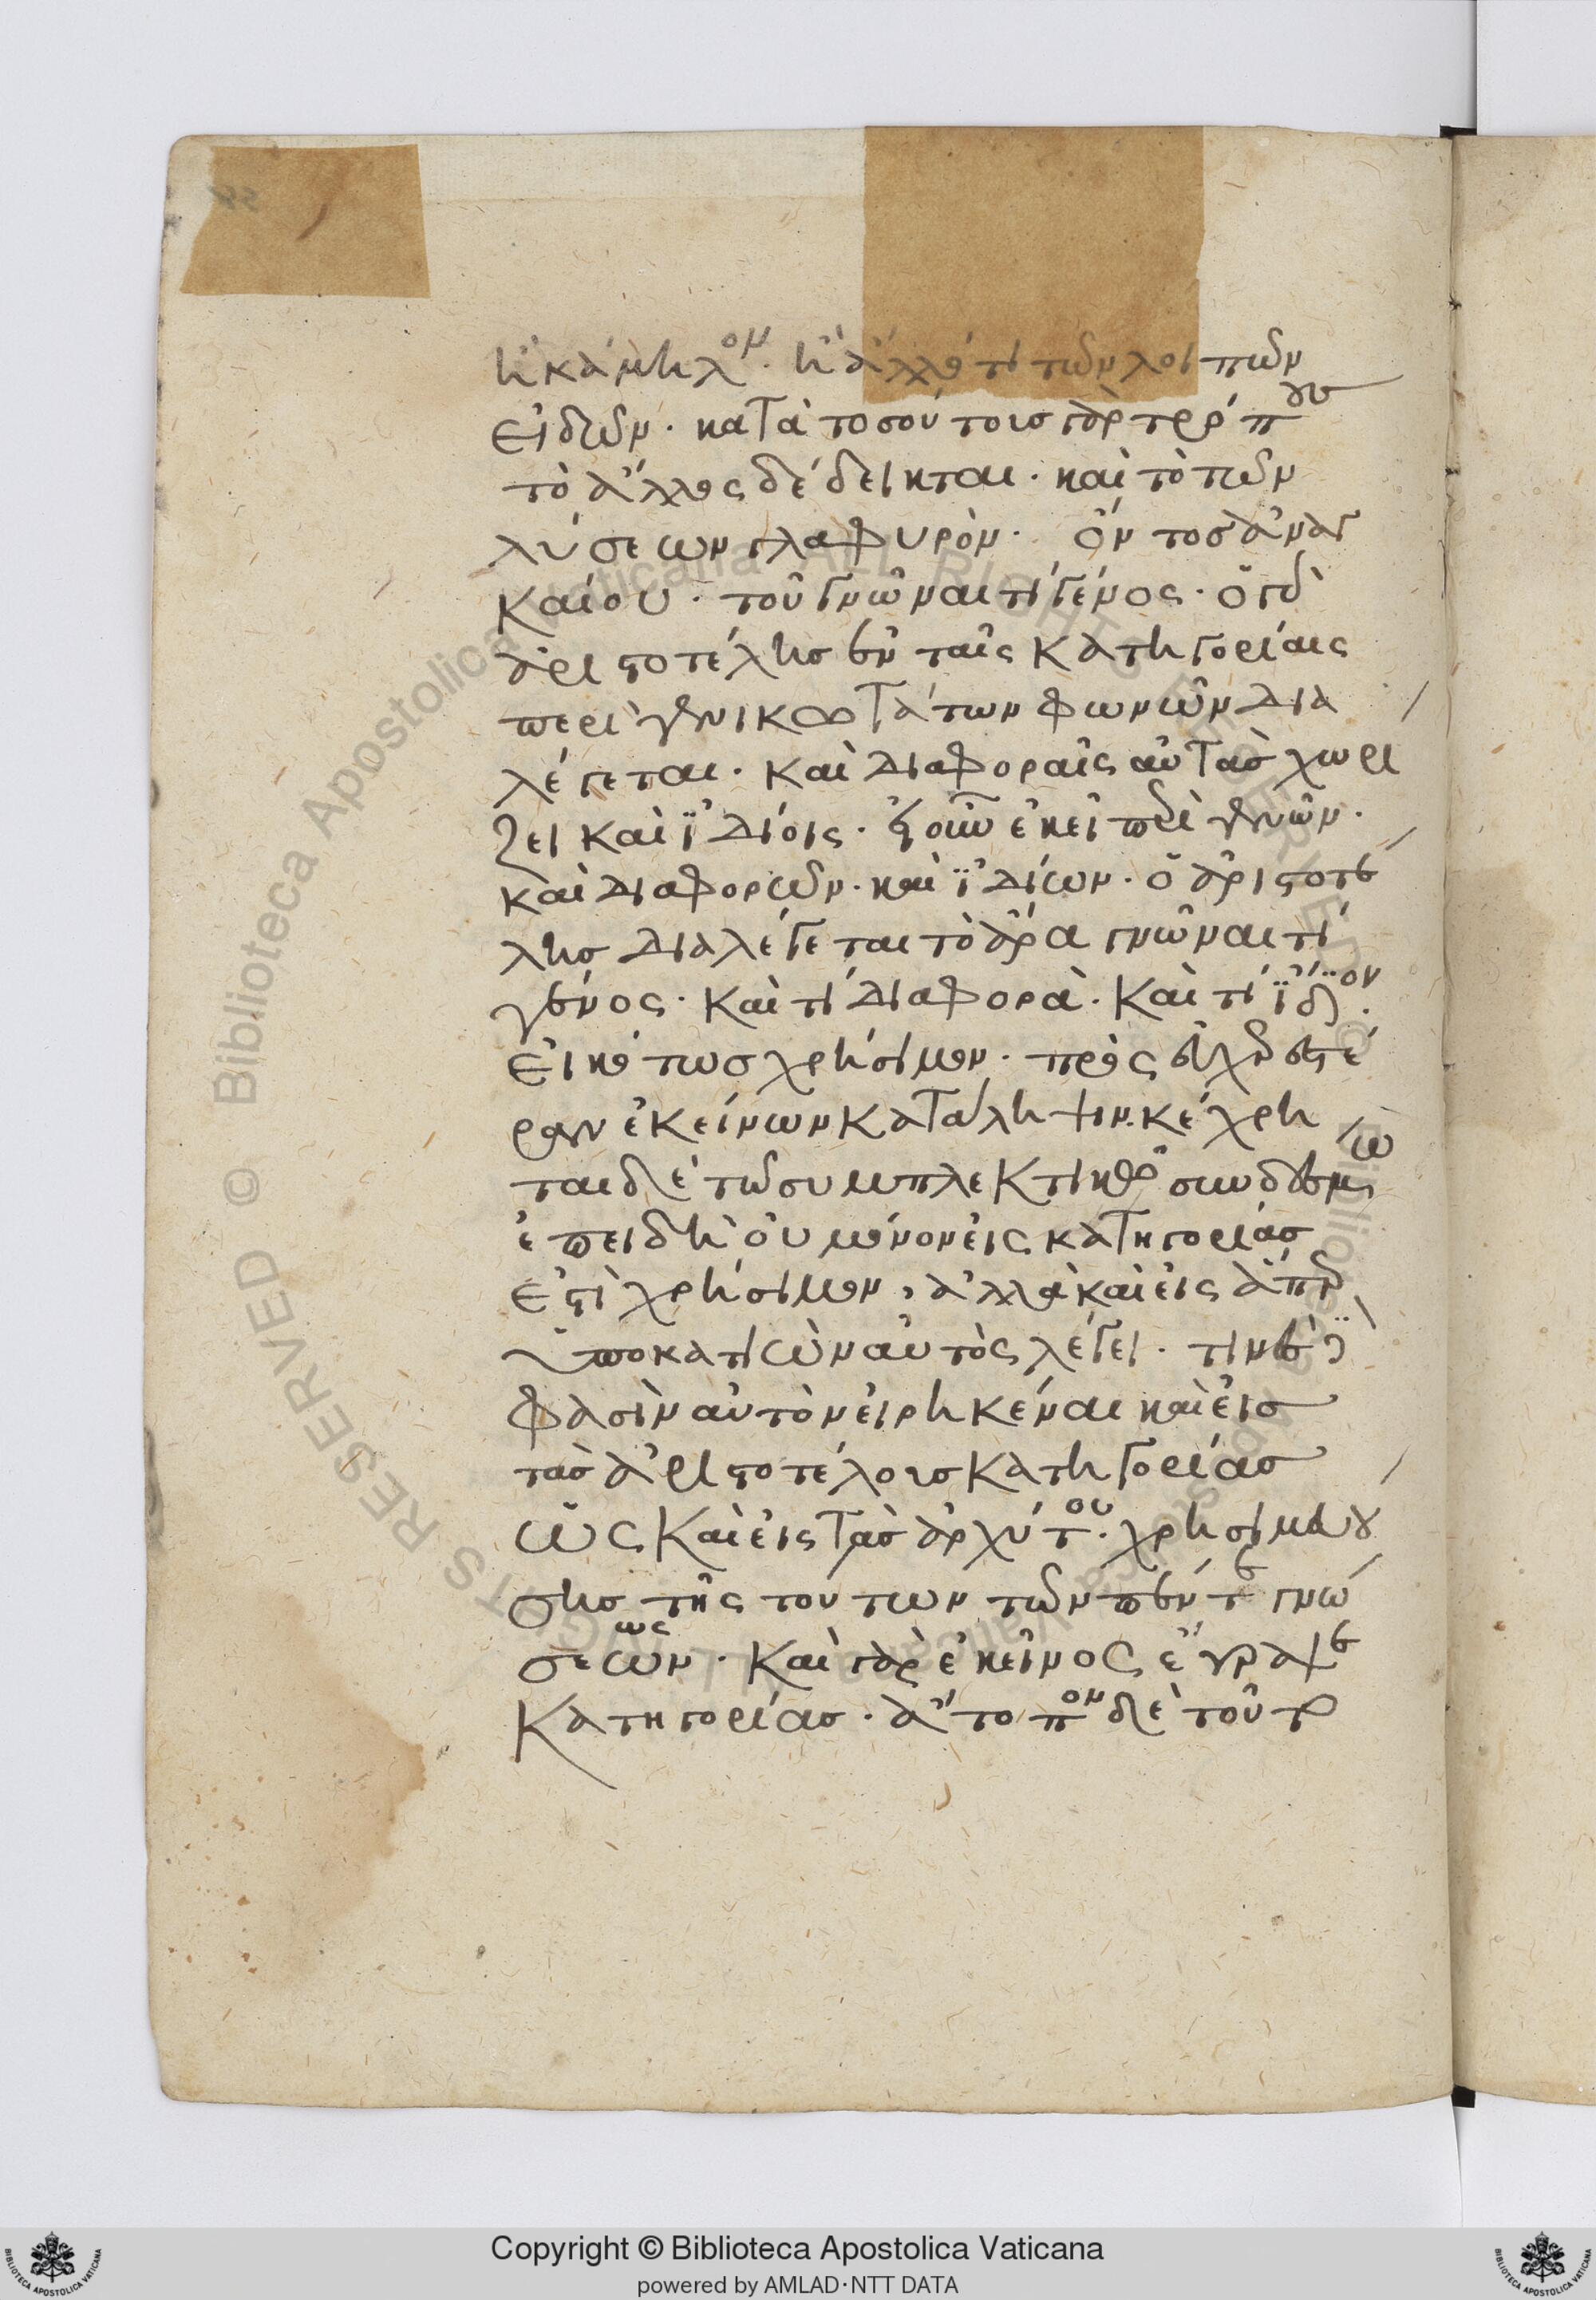 ἢ κάμηλον. ἢ ἄλλό τι τῶν λοιπῶν
εἰδῶν. κατὰ τοσούτους γὰρ τρόπους
τὸ ἄλλος δέδεικται. καὶ τὸ τῶν
λύσεων γλαφυρόν. ὄντος ἀναγ
καίου. τοῦ γνῶναι τί γένος. ὅτι δὲ
ἀριστοτέλης ἐν ταῖς κατηγορίαις
περὶ γενικωτάτων φωνῶν δια
λέγεται. καὶ διαφοραῖς αὐτὰς χωρί
ζει καὶ ἰδίοις. ἐκεῖ περὶ γενῶν.
καὶ διαφορῶν. καὶ ἰδίων. ὁ ἀριστοτέ
λης διαλέγεται τὸ ἄρα γνῶναι τί
γένος. καὶ τί διαφορά. καὶ τί ἴδιον.
εἰκότως χρήσιμον. πρὸς εὐχερεστέ
ραν ἐκείνων κατάληψιν. κέχρη
ται δὲ τῶ συμπλεκτικῶ συνδέσμω
ἐπειδὴ οὐ μόνον εἰς κατηγορίας
ἐστὶ χρήσιμον, ἀλλὰ καὶ εἰς ἅπερ
ὑποκατιὼν αὐτὸς λέγει. τινὲς
φασὶν αὐτὸν εἰρηκέναι καὶ εἰς
τὰς ἀριστοτέλους κατηγορίας
ὡς καὶ εἰς τὰς ἀρχύτου. χρησιμευού
σης τῆς τούτων τῶν πέντε γνώ
σεως. καὶ γὰρ ἐκεῖνος ἔγραψε
κατηγορίας. ἄτοπον δὲ τοῦτο
Copyright © Biblioteca Apostolica Vaticana
powered by AMLAD·NTT DATA